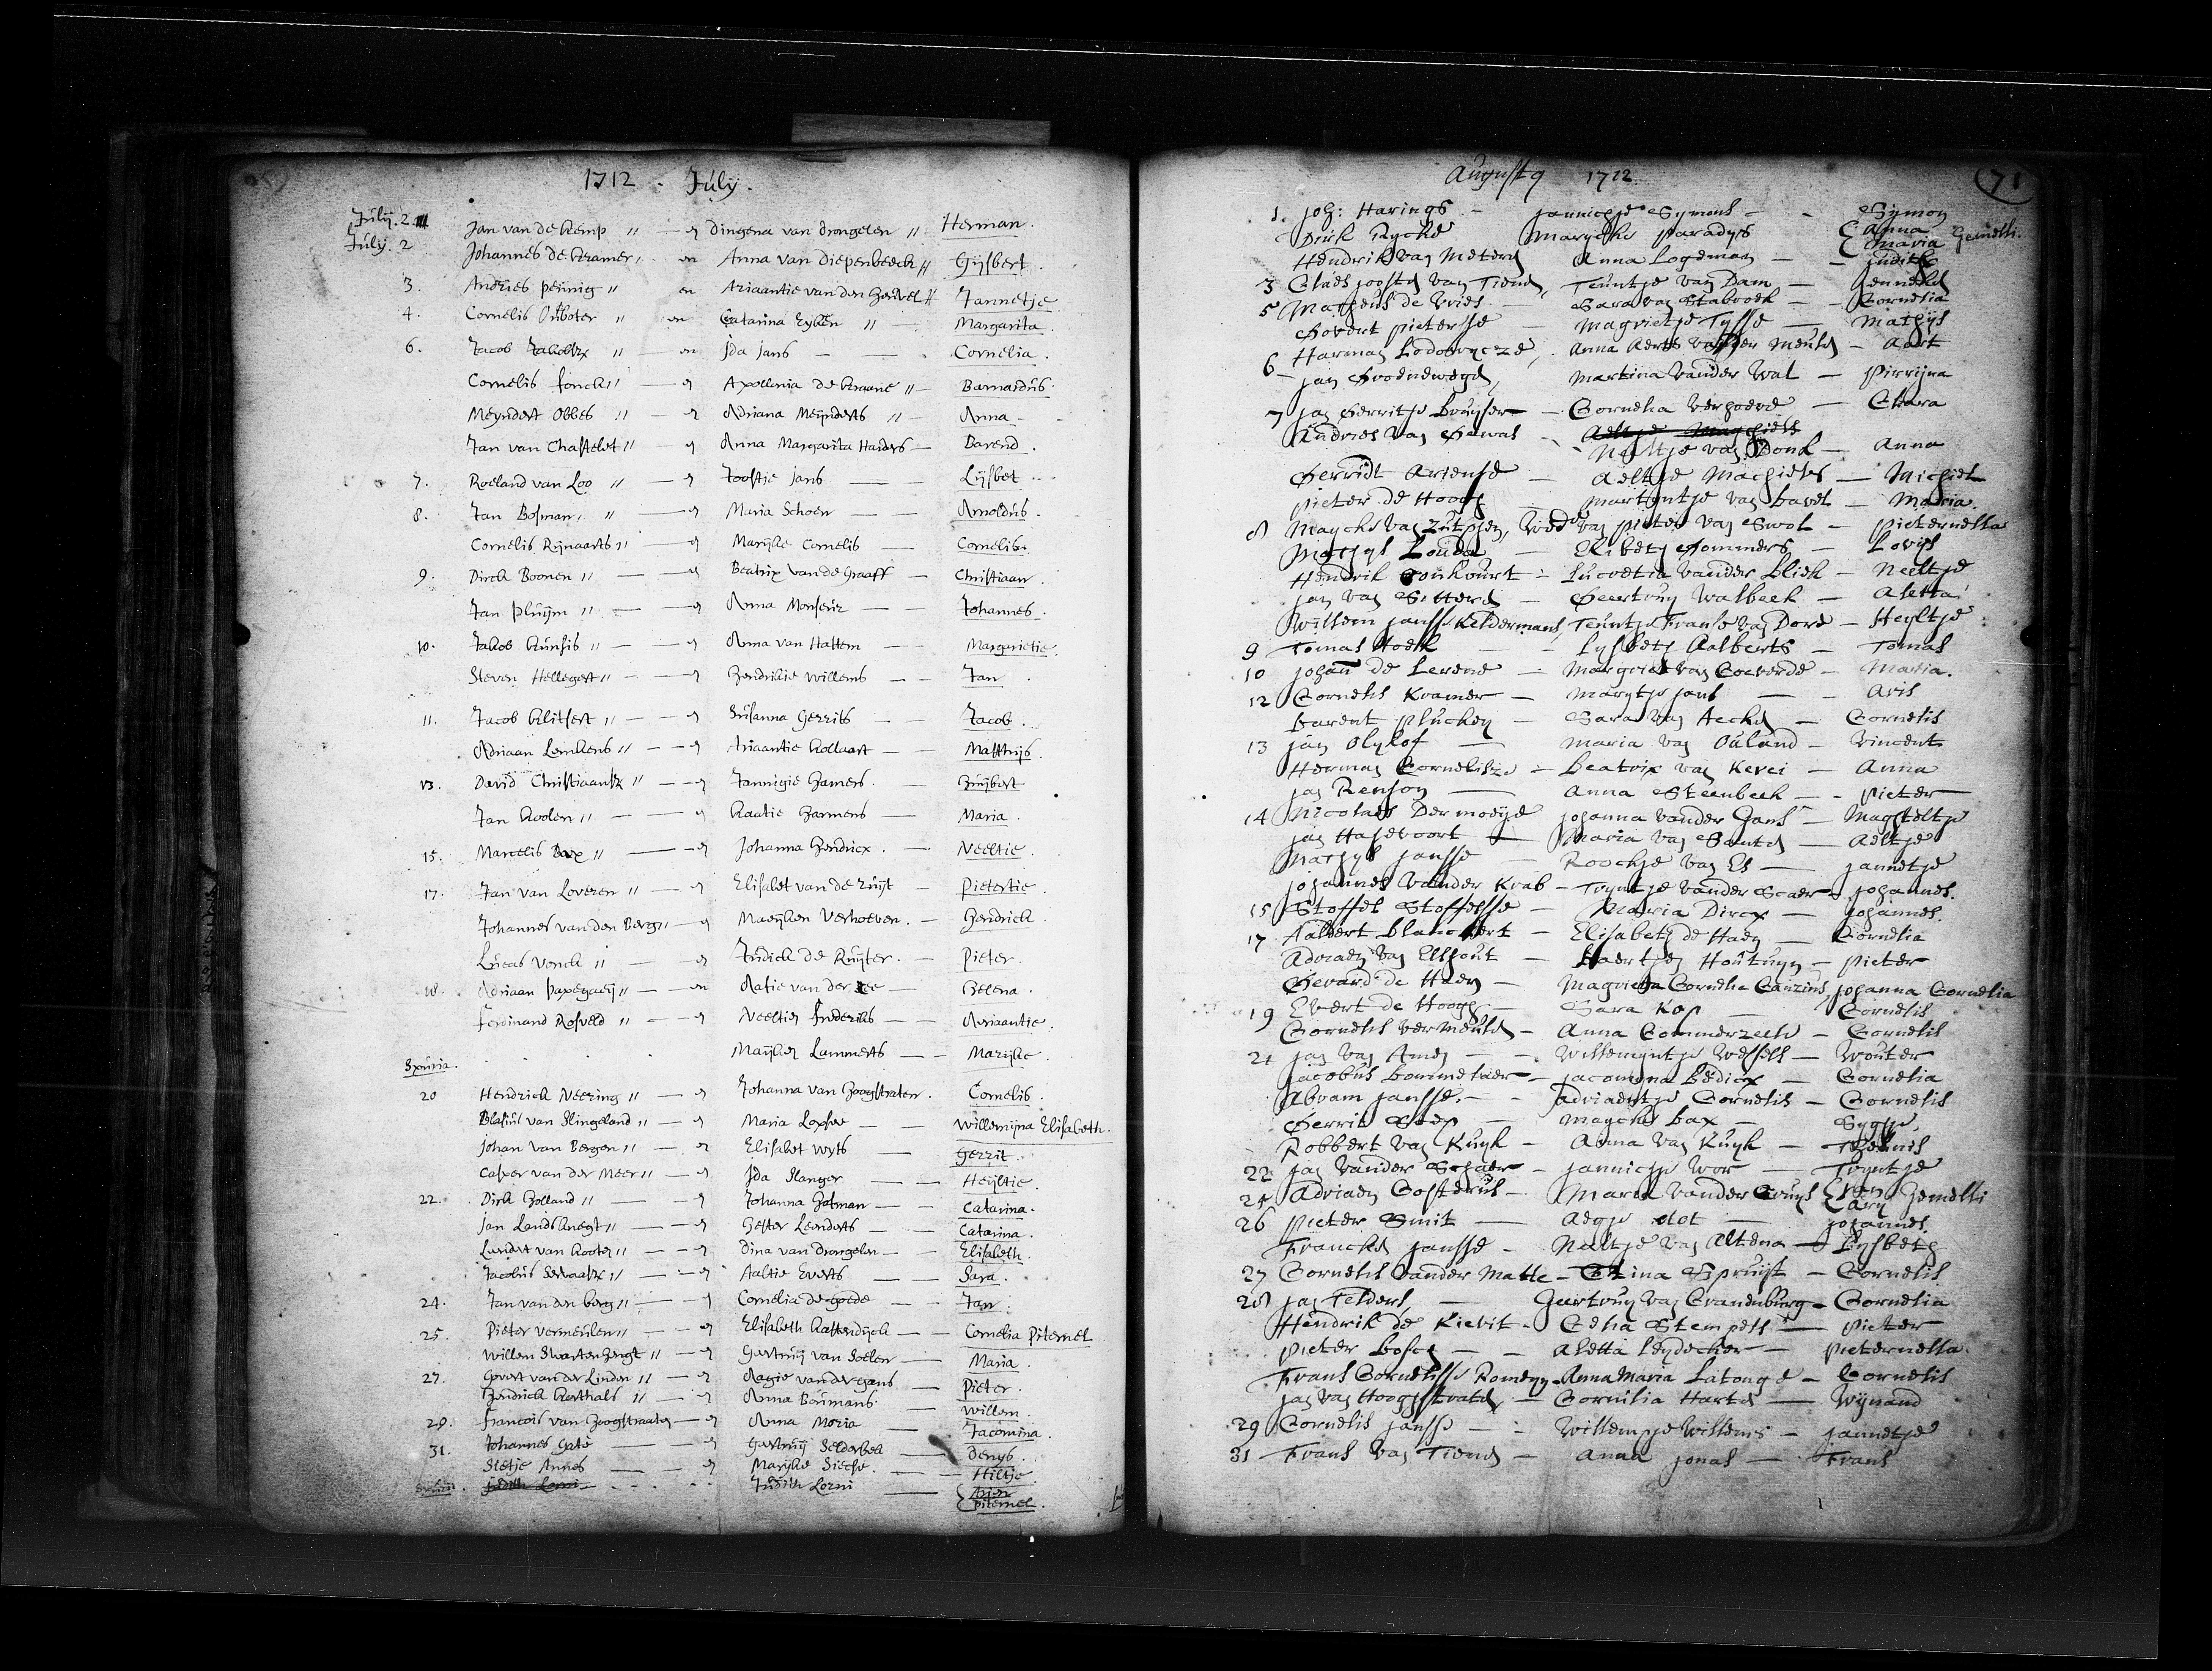 1712 . July.
July. 2 Jan van de kemp " — en Dingena van drongelen " Herman.
July. 2 Johannes de kramer " en Anna van Diepenbeeck " Gijsbert.
3. Andries pennig " en Ariaantie van den Heuvel " Jannetje
4. Cornelis " en Catarina Eyben " — Margarita.
6. Jacob " — en Ida Jans — — Cornelia.
Cornelis fonck " — en Apollonia de kraane " — Barnardus.
Meyndert Obbes " — en Adriana Meynderts " — Anna —
Jan van Chastelet " — en Anna Margarita Harders — Barend.
7. Roeland van Loo " — en Joostje Jans — — Lijsbet
8. Jan Bosman " — en Maria Schoen — — Arnoldus.
Cornelis Rijnaarts " — en Marijke Cornelis — Cornelis.
9. Dirck Boonen " — en Beatrix van de Graaff — Christiaan.
Jan pluijm " — en Anna Monseur — — Johannes.
10. Jakob " — en Anna van Hattem — Margarietie.
Steven Hellegert " — en Hendrikie Willems — — Jan.
11. Jacob " — en Susanna Gerrits — — Jacob.
Adriaan Lemkens " — en Ariaantie kollaart — — Matthijs.
13. David Christiaansz " — en Jannigie Hamers. — Huijbert
Jan koolen " — en kaatie Harmens — Maria.
15. Marcelis Bax " — en Johanna Hendricx. — Neeltie.
17. Jan van Loveren " — en Elisabet van de Zuijt — Pietertie.
Johannes van den Berg " — en Marijken Verhoeven. — Hendrick.
Lucas Vonck " — en Judick de Ruijter. — Pieter.
18. Adriaan " — en Aafie van der — Helena.
Ferdinand Rosveld " — en Neeltien frederiks — Ariaantie.
Spuria. Maijken Lammerts — — Marijke.
20 Hendrick Neering " — en Johanna van Hoogstraten. Cornelis.
Blasius van Slingeland " — en Maria — — Willemijna Elisabeth.
Johan van Bergen " — en Elisabet wyts — Gerrit.
Casper van der Meer " — en Ida Slanger — — Heijltie.
22. Dirk Holland " — en Johanna Hofman — — Catarina.
Jan Landsknegt " — en Hester Leenderts — — Catarina.
Lendert van kooten " — — en Dina van drongelen — — Elisabeth.
Jacobus " — en Aaltie Everts — — Sara.
24. Jan van den berg " — en Cornelia de goede — — Jan.
25. Pieter vermeulen " — en Elisabeth kattendijck — — Cornelia Piternel
Willem Swartenhengt " — en Geertruij van Soelen — Maria.
27. Govert van der Linden " — en Aagie van der gans — Pieter.
Hendrick karthals " — en Anna Boumans — Willem.
29. francois van Hoogstraaten — en Anna Moria — Jacomina.
31. Johannes — en Geertruij Selderbeek — Denys.
Sietje Annes — en Marijke — — Hiltje.
Judith Lorni — Arien
Piternel.
71
August 9 1712
1. Joh: Harings — Jannichje Symons — — Symon
Dirck Rycke Maryche paradys Anna
Maria Gemelli.
Hendrik van Meteren Anna Logeman — Judith
3 Claes Joosten van Tienen, Teuntje van Dam — Jenneken
5 Matheus de Vries — Sara van Stabroek — Cornelia
Govert Pieterse — Magrietje Tysse — Mathys
6 Harman Lodowycze, Anna Aerts van der Meulen — Aert
Jan Groenewegen, Martina vander Wal — Pirryna
7 Jan Gerritse Bruyser — Cornelia Verhoeve — Clara
Andries van Gewas — Aeltje Machiels
Neeltje van Donk — Anna
Gerridt Ariense — Aeltje Machiels — Michiel
Pieter de Hoogh — Martyntje van Bavel — Maria
8 Mayche van Zutphen, Wede van Pieter van Swol — Pieternella
Mathys — Elibeth Sommers — Lovys
Hendrik — Lucretia vander Bliek — Neeltje
Jan van Sittert — Geertruy Walbeek — Aletta
Willem Jansse Keldermans, Teuntje Frans van Dord — Heyltje
9 Tomas Hoek — — Lysbeth Aalberts — Tomas
10 Johan de Leeuwe — Margriet van Coeverde — Maria.
12 Cornelis Kramer — Marytje Jans — — Aris
Barent Pluckey — Sara van Aecken — Cornelis
13 Jan Olykof — Maria van Ouland — Vincent
Herman Cornelisze — Beatrix van Kerei — Anna
Jan Renson — Anna Steenbeek — — Pieter
14 Nicolaes Dermoeye Johanna vander Gans — Magteltje
Jan Hasevoort — Maria van Santen — Aeltje
Mathys Jansse — Roockje van Es — Jannetje
Johannes vander Krab — Tryntje vander Scaer — Johannes.
15 Stoffel Stoffelsse — Maria Dircx — Johannes.
17 Aalbert Blanckert — Elisabeth de Haen — Cornelia
Adriaen van Elshout — Maertjen Houtuyn — Pieter
Gerard de Haen — Magrieta Cornelia Canzius, Johanna Cornelia
19 Evert de Hoogh — Sara Kop — Cornelis
Cornelis Vermeulen — Anna Commerzeele — Cornelis
21 Jan van Amen — — Willemyntje Wessels — Wouter
Jacobus Bommelaer — Jacomyna Bedicx — Cornelia
Abram Jansse. — — Adriaentje Cornelis — Cornelis
Gerrit — Mayche bax — Sygje.
Robbert van Kuyk — Anna van Kuyk — Theunis
22 Jan vander Schaer — Jannichje Wor — Tryntje
24 Adriaen Costerus — Maria vander Cruys
Ary Gemelli
26 Pieter Smit — Aegje — Johannes.
Francken Jansse — Neeltje van Altena — Lysbeth
27 Cornelis vander Matte — Stina Spruijt — Cornelis
28 Jan Telders, — Geertruy van Craanenburg — Cornelia
Hendrik de Kievit — Celia Stempels — Pieter
Pieter Bosch — — Aletta Leydecker — Pieternella.
Frans Cornelisse Romeyn — Anna Maria Latonge — Cornelis
Jan van Hooghstraten — Cornelia Harten — Wynand
29 Cornelis Jansse — — Willempje Willems — Jannetje
31 Frans van Tienen — Anna Jonas — Frans